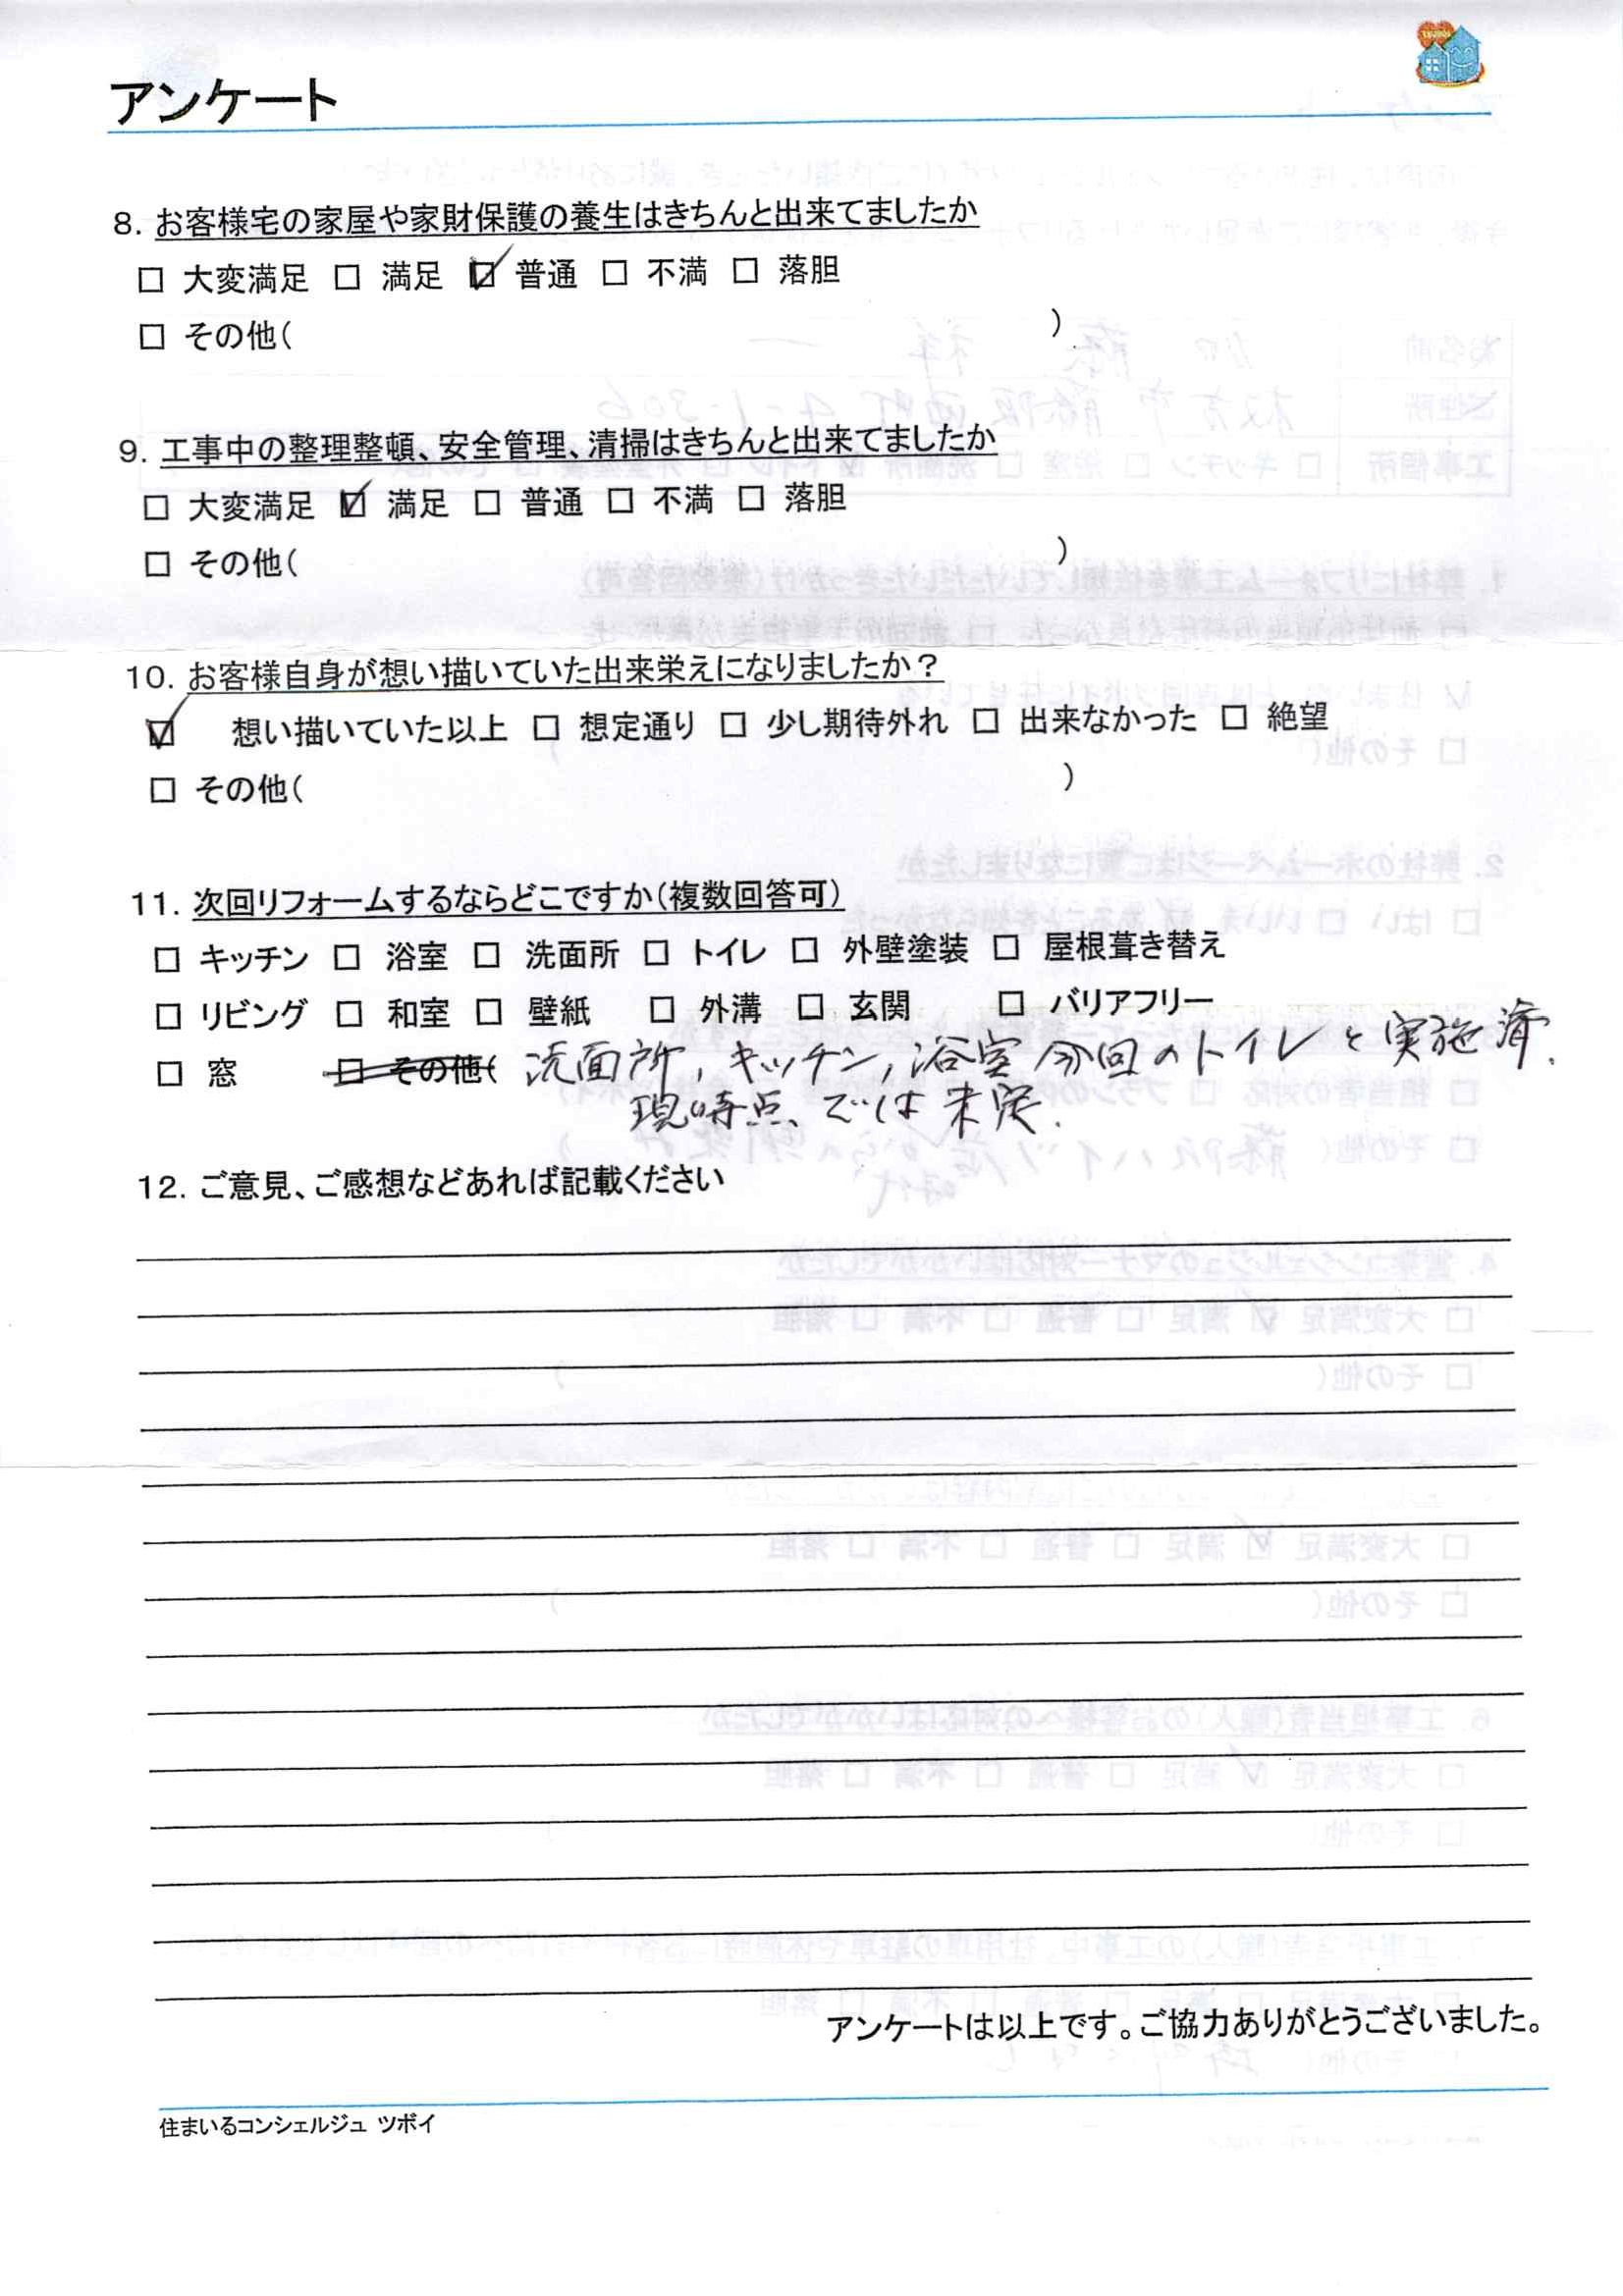 アンケート
8. お客様宅の家屋や家財保護の養生はきちんと出来てましたか
□ 大変満足 □ 満足 ☑ 普通 □ 不満 □ 落胆
□ その他( )
9. 工事中の整理整頓、安全管理、清掃はきちんと出来てましたか
□ 大変満足 ☑ 満足 □ 普通 □ 不満 □ 落胆
□ その他( )
10. お客様自身が想い描いていた出来栄えになりましたか?
☑ 想い描いていた以上 □ 想定通り □ 少し期待外れ □ 出来なかった □ 絶望
□ その他( )
11. 次回リフォームするならどこですか(複数回答可)
□ キッチン □ 浴室 □ 洗面所 □ トイレ □ 外壁塗装 □ 屋根葺き替え
□ リビング □ 和室 □ 壁紙 □ 外溝 □ 玄関 □ バリアフリー
□ 窓 □ その他( 洗面所, キッチン, 浴室 今回のトイレと実施済.
現時点では未定.
12. ご意見、ご感想などあれば記載ください
アンケートは以上です。ご協力ありがとうございました。
住まいるコンシェルジュ ツボイ